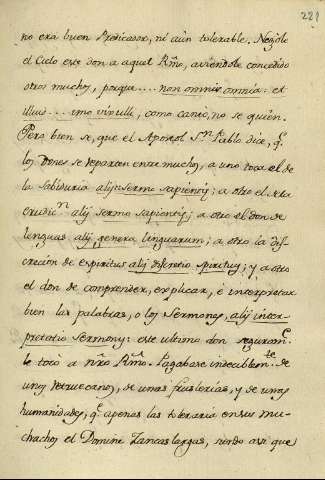 221
no era buen Predicador, ni aún tolerable. Nególe
el Cielo este don a aquel Rmo, aviendole concedido
otros muchos, porque .... non omnia omnia et
illud .... imo viri illi, como canto, no se quien.
Pero bien se, que el Apostol Sn Pablo dice, q.e
los Dones se reparten entre muchos, a uno toca el de
la Sabiduria alij sermo sapientiȩ; a otro el de la
erudicn alij sermo sapientiȩ; a otro el don de
lenguas alij genera linguarum; a otro la dis-
crecion de espiritus alij discretio spiritus; y a otro
el don de comprender, explicar, è interpretar
bien las palabras, o los Sermones, alij inter-
pretatio Sermonũ: este ultimo don seguram.te
le tocò a nr̃o Rmo. Pagabase indecublem.te de
unos retruecanos, de unas fruslerias, y de unas
humanidades, q.e apenas las toleraria en sus mu-
chachos el Domine Zancas largas, siendo asi que